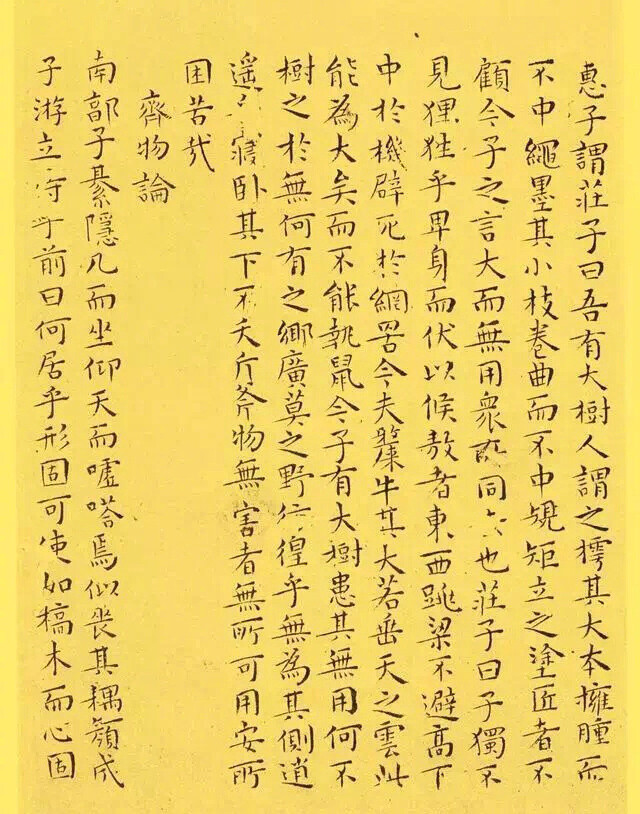 惠子謂莊子曰吾有大樹人謂之樗其大本擁腫而
不中繩墨其小枝卷曲而不中規矩立之塗匠者不
顧今子之言大而無用衆所同去也莊子曰子獨不
見狸狌乎卑身而伏以候敖者東西跳梁不避高下
中於機辟死於網罟今夫斄牛其大若垂天之雲此
能為大矣而不能執鼠今子有大樹患其無用何不
樹之於無何有之鄉廣莫之野彷徨乎無為其側逍
遥寢卧其下不夭斤斧物無害者無所可用安所
困苦哉
齊物論
南郭子綦隱几而坐仰天而嘘嗒焉似喪其耦顏成
子游立侍乎前曰何居乎形固可使如槁木而心固